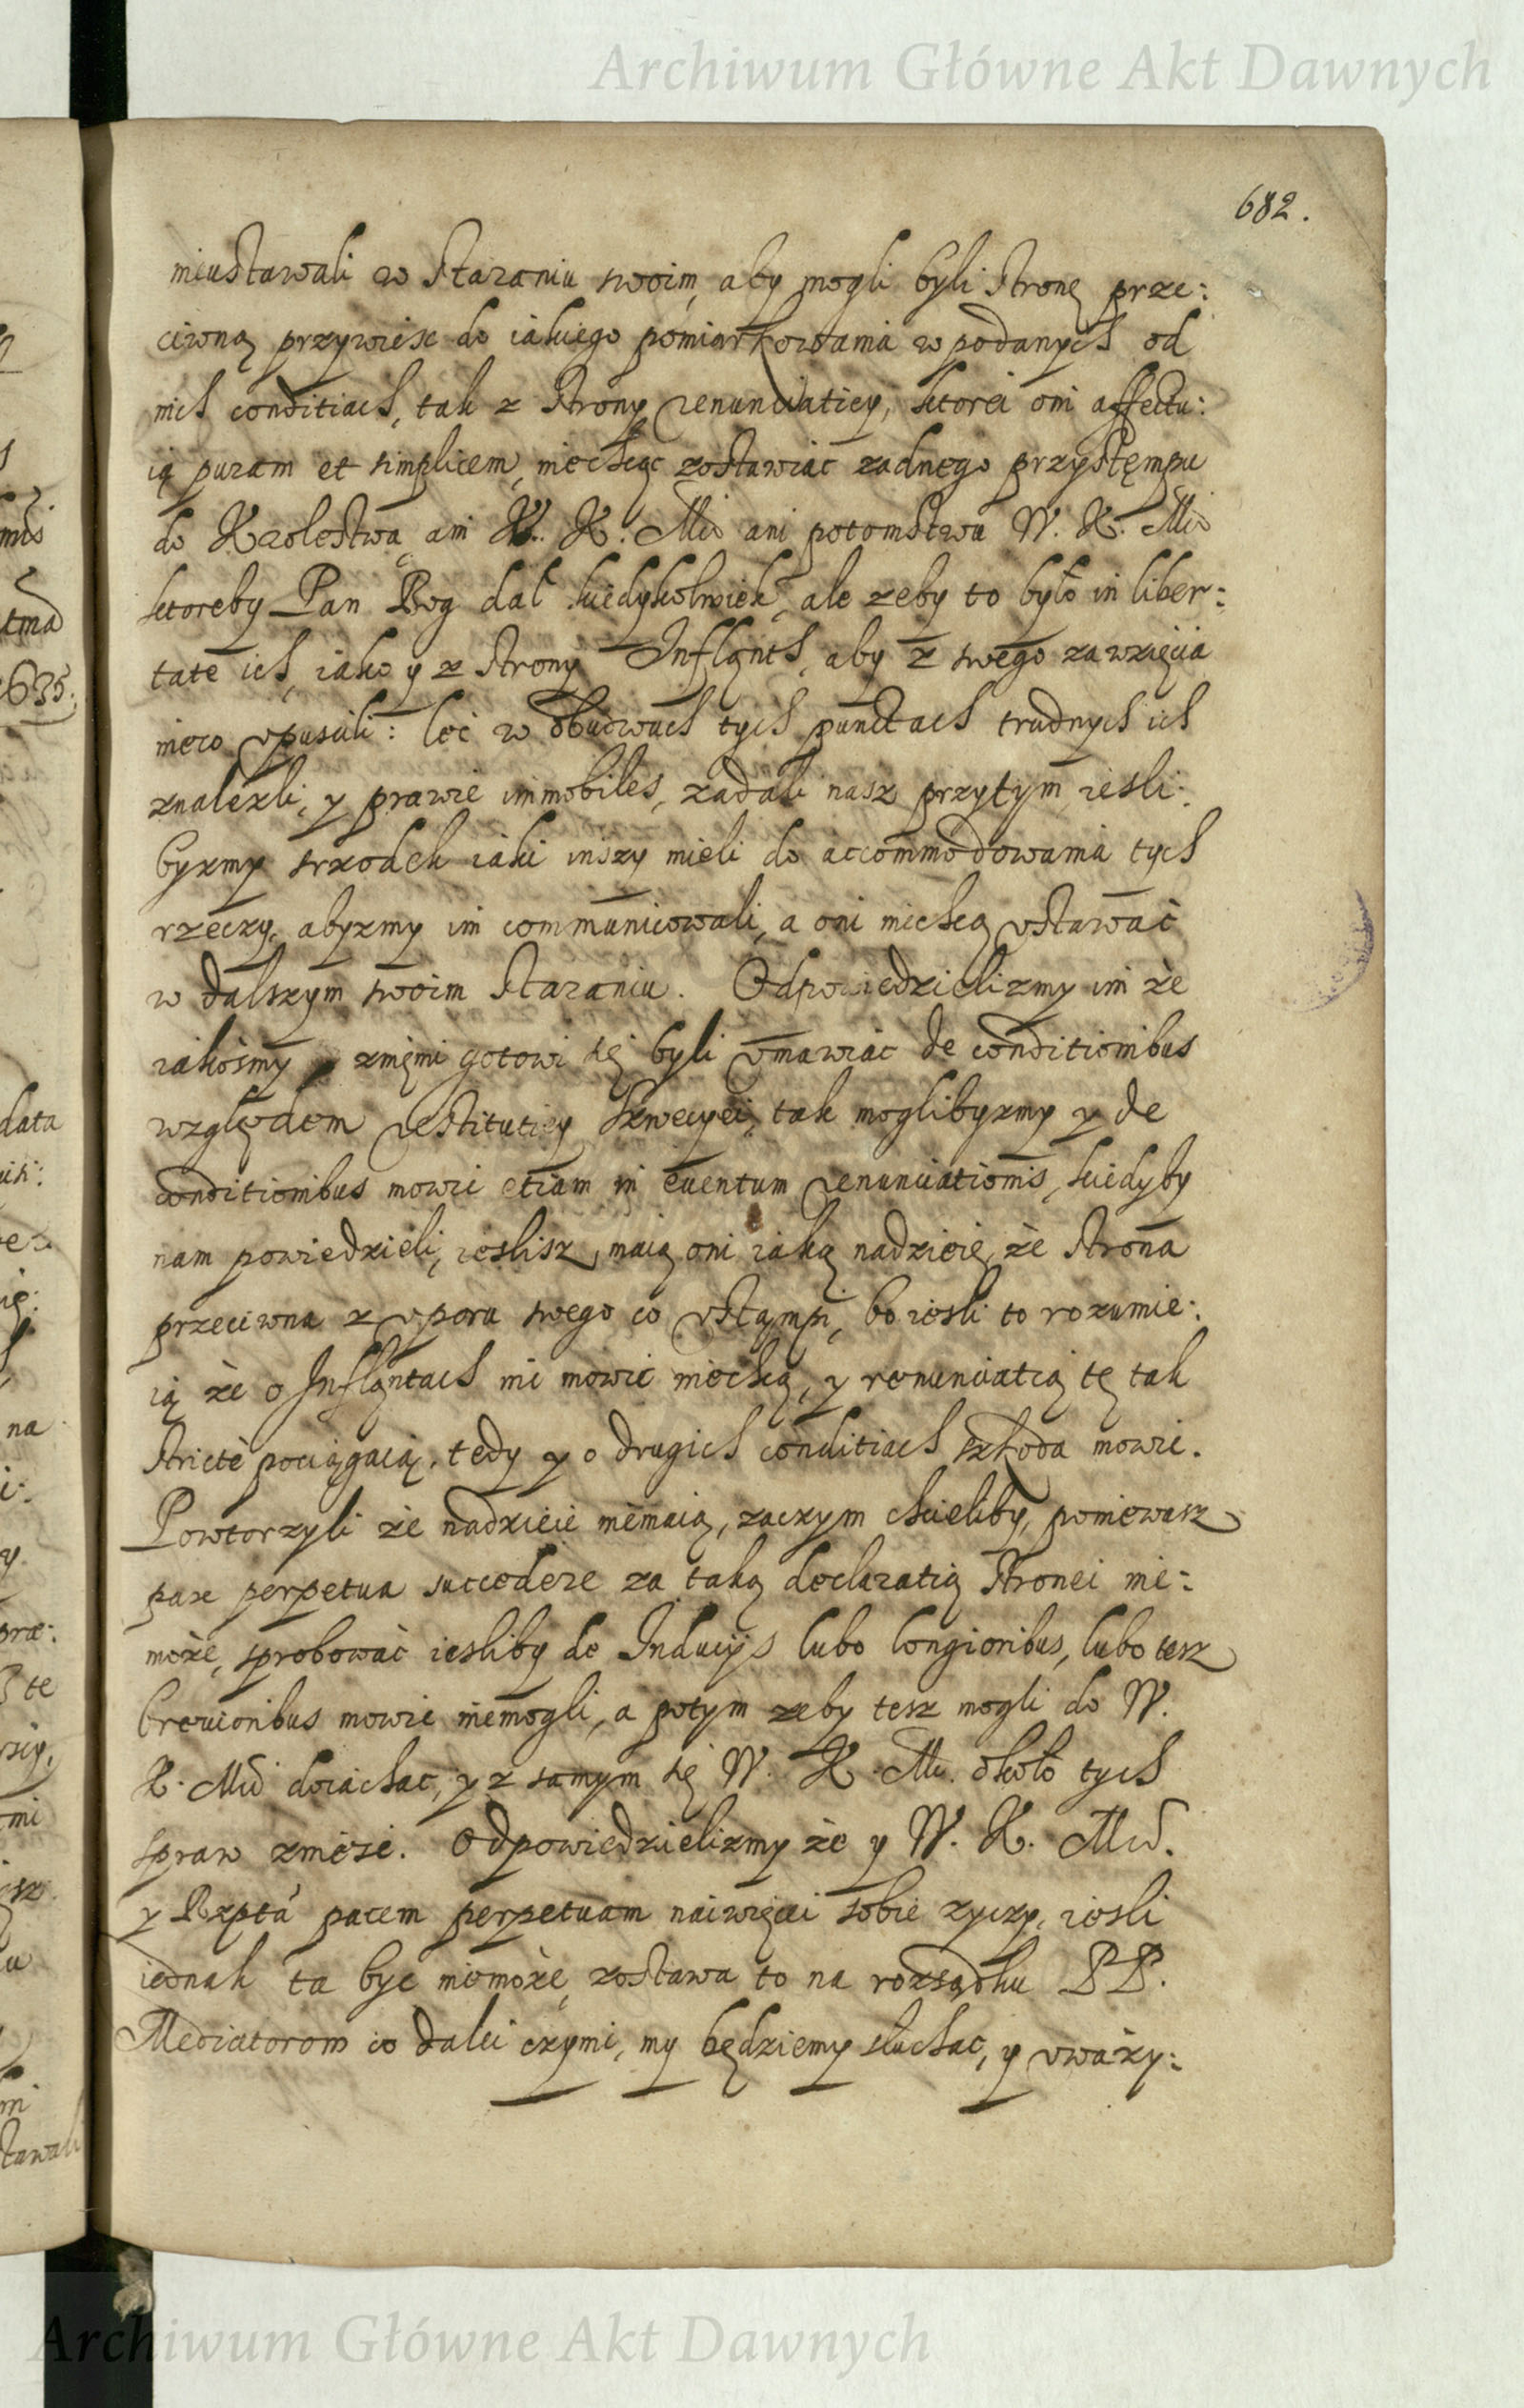 Archiwum Główne Akt Dawnych
682.
nieustawali w staraniu swoim, aby mogli byli stronę prze:
ciwną przywiesc do iakiego pomiarkowania w podanych od
nich conditiach, tak z strony renuntiaticy, ktorei oni affectu:
ią puram et simplicem, niechcąc zostawiać zadnego przystempu
do Krolestwa ani W. K. Mci ani potomstwu W. K. Mci
ktoreby Pan Bog dał kiedykolwiek, ale zeby to było in liber:
tate ich, iako y z strony Inflant, aby z swego zawzięcia
nieco vpuscili: lec w obudwuch tych punctach trudnych ich
znalezli, y prawie immobiles, ządali nasz przytym, iesli:
byzmy srzodek iaki inszy mieli do accommodowania tych
rzeczy, abyzmy im communicowali, a oni niechcą vstawać
w dalszym swoim staraniu. Odpowiedzielizmy im że
iakośmy z niemi gotowi się byli vmawiać de conditionibus
względem restituticy Szwecyei, tak moglibyzmy y de
conditionibus mowic etiam in euentum renuntiationis, kiedyby
nam powiedzieli, ieslisz maią oni iaką nadzieię, że strona
przeciwna z vporu swego co vstąmpi, bo iesli to rozumie:
ią że o Inflantach nic mowić niechcą, y renuntiatią tę tak
stricte pociągaią, tedy y o drugich conditiach szkoda mowic.
Powtorzyli że nadzieie niemaią, zaczym chcieliby, poniewasz
pax perpetua succedere za taką declaratią stronei nie:
może, sprobować iesliby de Inducijs lubo longioribus, lubo tesz
breuioribus mowic niemogli, a potym zeby tesz mogli do W.
K. Mci doiachac, y z samym się W. K. Mc. około tych
spraw zniesc. Odpowiedzielizmy że y W. K. Mc.
y Rzpta pacem perpetuam naiwięcei sobie zyczy, iesli
iednak ta byc niemoże, zostawa to na rozsądku PP.
Mediatorom co dalei czyni, my będziemy słuchac, y vważy:
Archiwum Główne Akt Dawnych